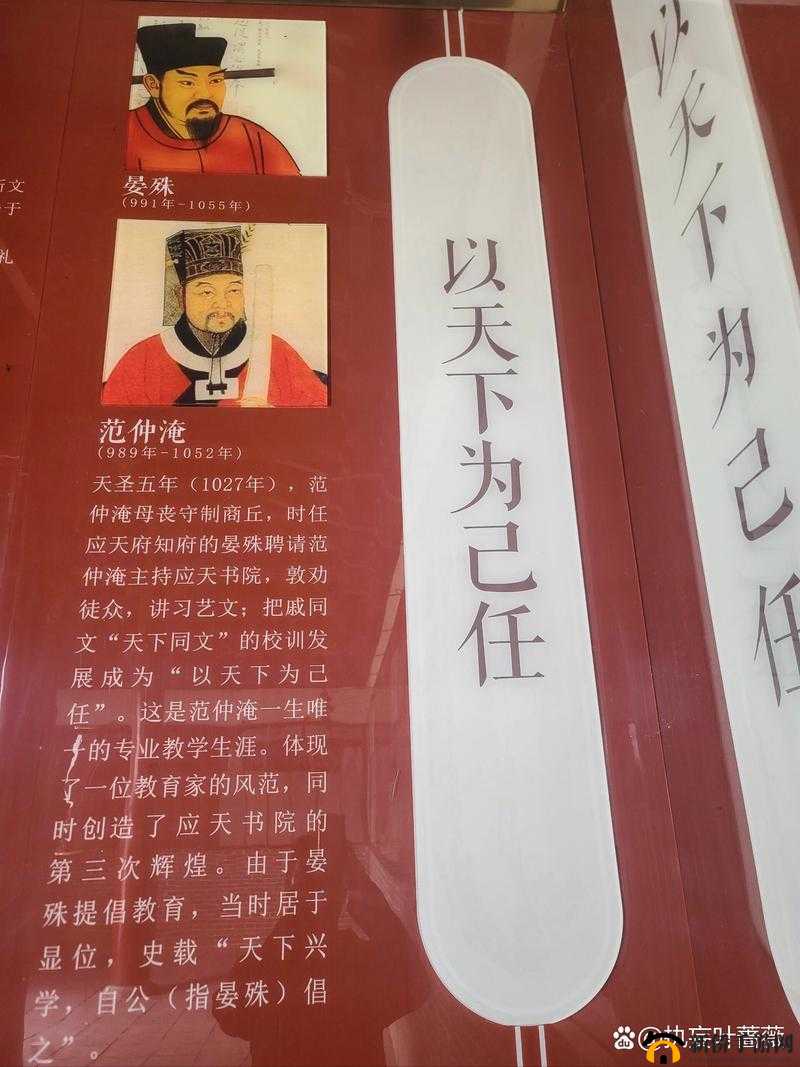 晏殊
(991年-1055年)
范仲淹
(989年-1052年)
天圣五年（1027年），范
仲淹母丧守制商丘，时任
应天府知府的晏殊聘请范
仲淹主持应天书院，敦劝
徒众，讲习艺文；把戚同
文“天下同文”的校训发
展成为“以天下为己
任”。这是范仲淹一生唯
一的专业教学生涯。体现
了一位教育家的风范，同
时创造了应天书院的
第三次辉煌。由于晏
殊提倡教育，当时居于
显位，史载“天下兴
学，自公（指晏殊）倡
之”。
以天下为己任
以天下为己任
文
于
礼
du @热忘叶蔷薇